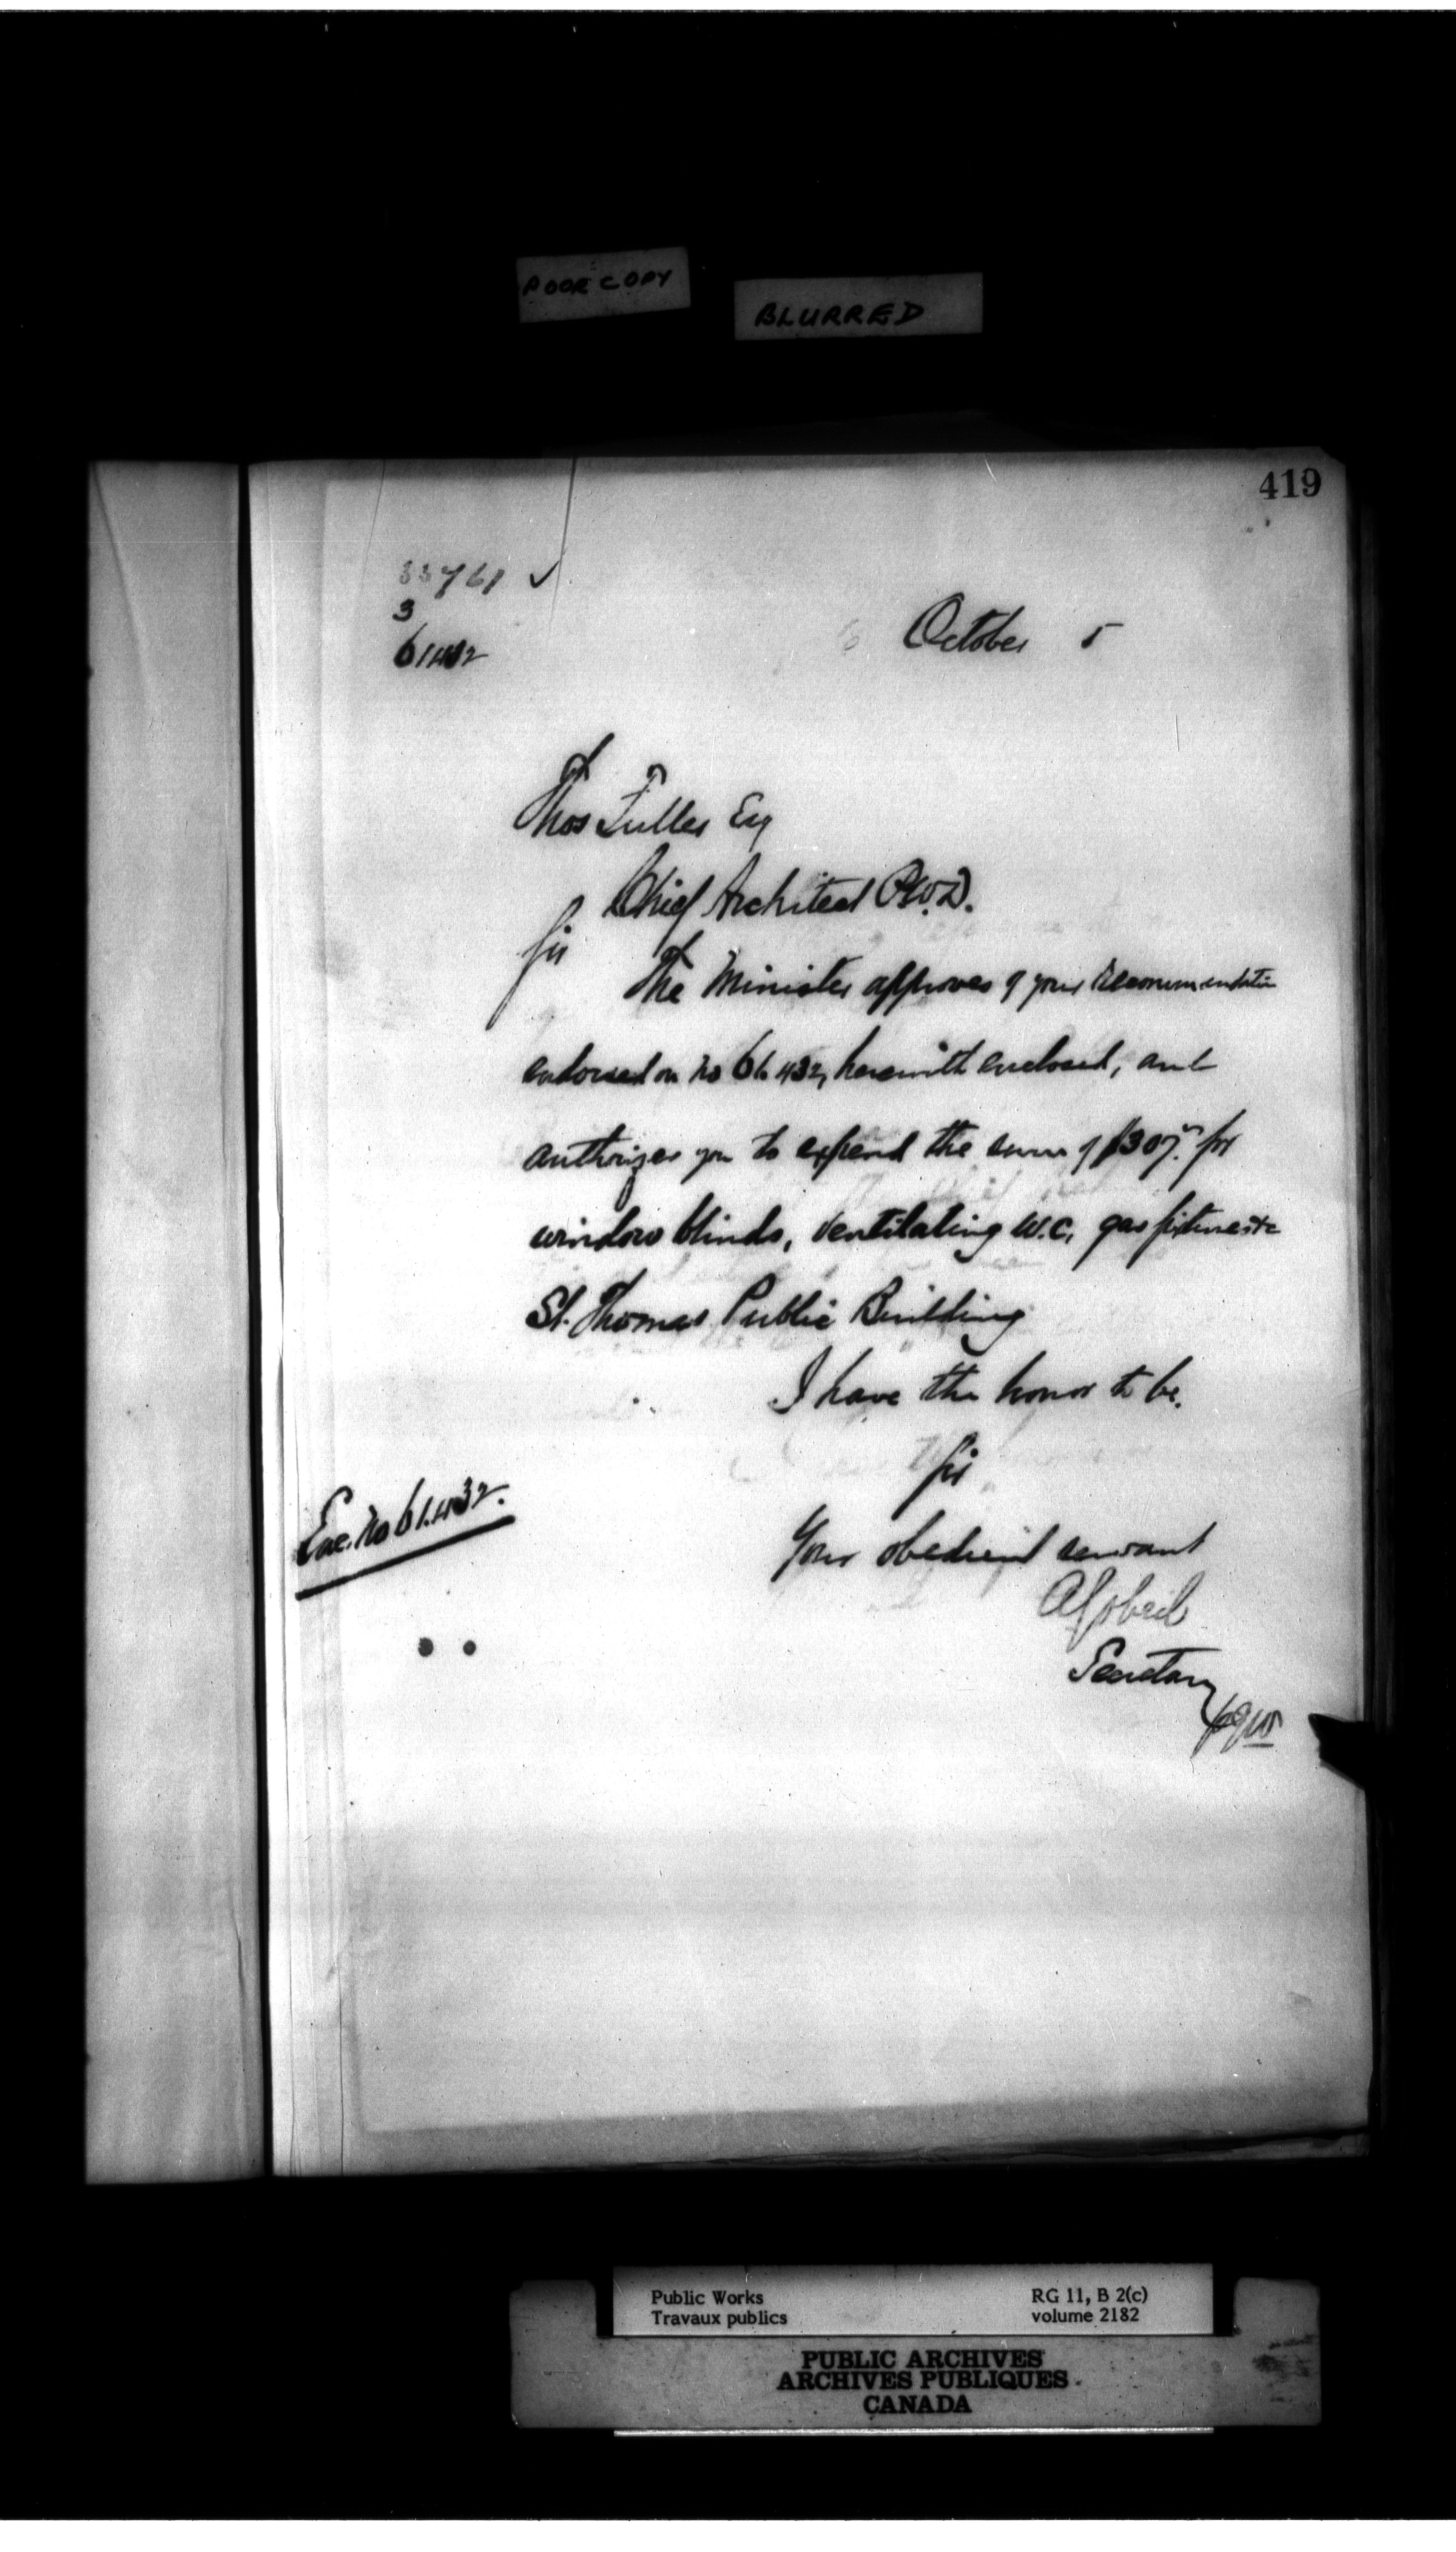 POOR COPY
BLURRED
419
3
61432
October 5
Thos Fuller Esq
Chief Architect P.W.D.
Sir
The Minister approves of your recommendation
endorsed on No 61.432, herewith enclosed, and
authorizes you to expend the sum of $307. for
window blinds, ventilating W.C, gas fixtures &c
St. Thomas Public Building
I have the honor to be.
Sir
Your obedient servant
Enc. No 61.432.
Secretary
Public Works
Travaux publics
RG 11, B 2(c)
volume 2182
PUBLIC ARCHIVES
ARCHIVES PUBLIQUES
CANADA